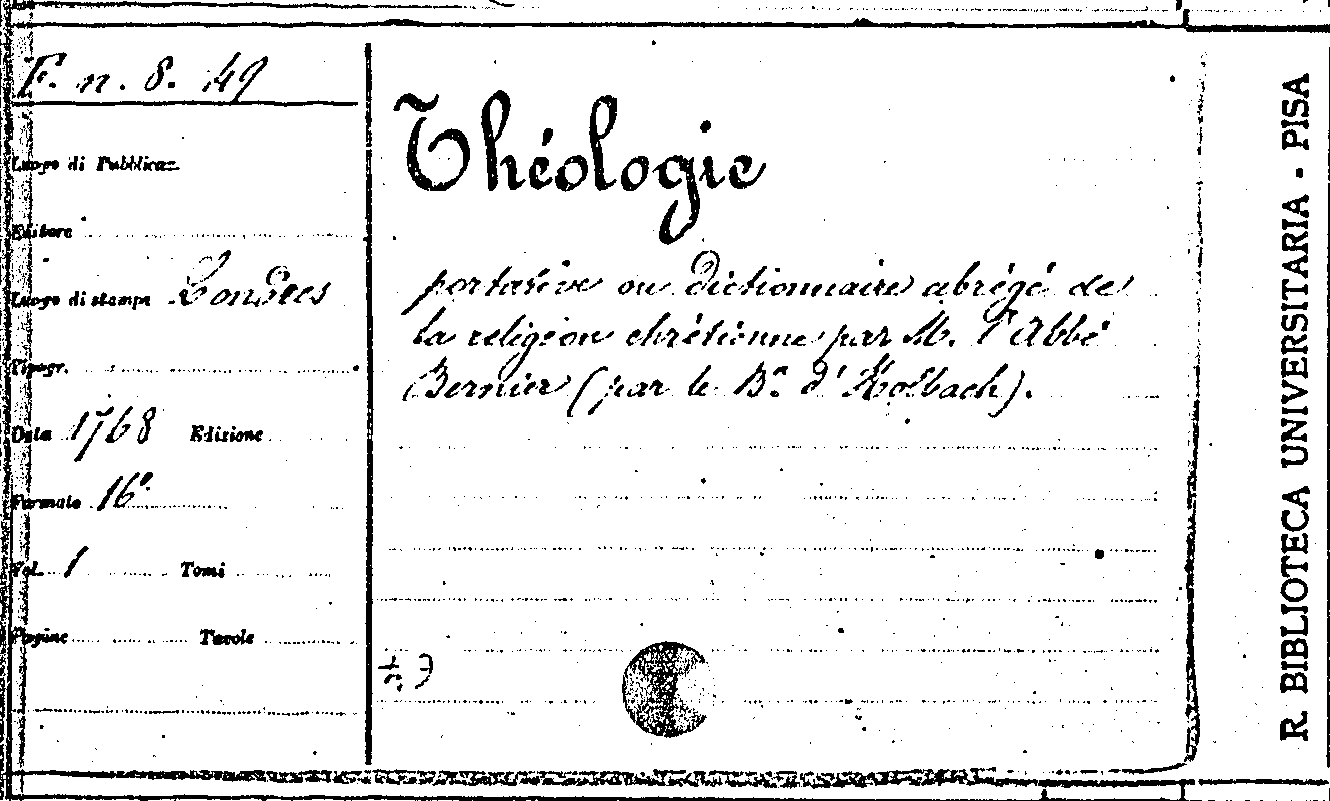 F. n. 8. 49
Luogo di Pubblicaz.
Editore
Luogo di stampa Londres
Tipogr.
Data 1768 Edizione
Formato 16º
Vol. 1 Tomi
Pagine Tavole
Théologie
portative ou Dictionnaire abrégé de
la religion chrétienne par M. l'Abbé
Bernier (par le Bⁿ d'Holbach).
R. BIBLIOTECA UNIVERSITARIA - PISA